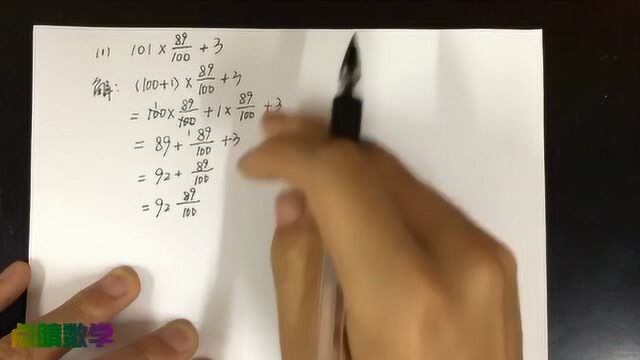 (1) 101 × 89/100 + 3
解: (100+1) × 89/100 + 3
= 100 × 89/100 + 1 × 89/100 + 3
= 89 + 89/100 + 3
= 92 + 89/100
= 92 89/100
点睛数学